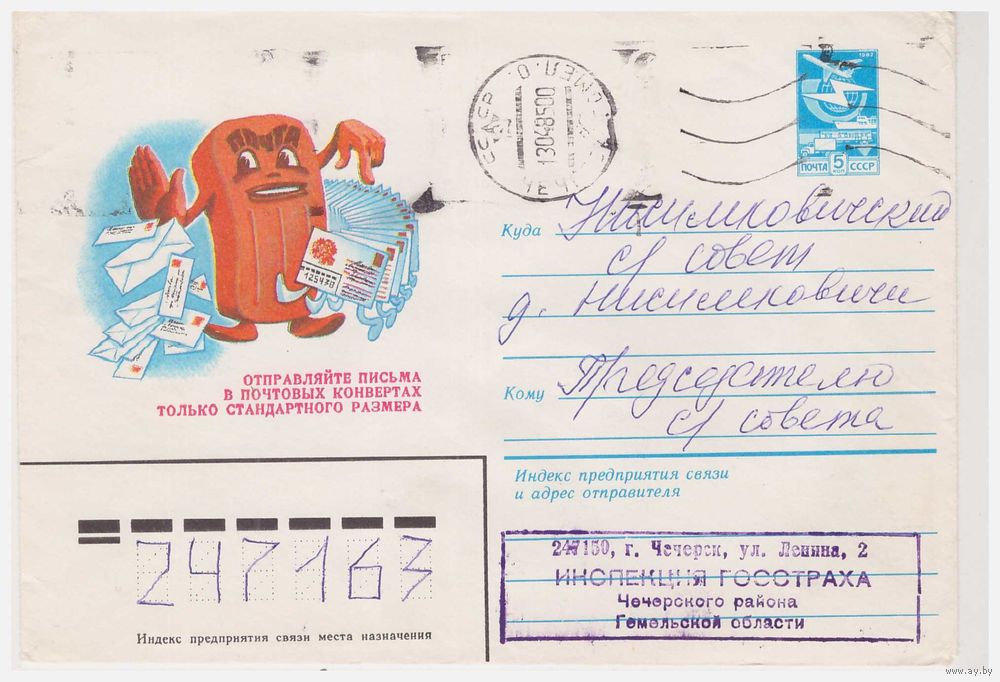 ССР
ГОМЕЛ. О.
13048500
ЧЕЧ
1982
ПОЧТА 5 КОП СССР
125430
ОТПРАВЛЯЙТЕ ПИСЬМА
В ПОЧТОВЫХ КОНВЕРТАХ
ТОЛЬКО СТАНДАРТНОГО РАЗМЕРА
Куда Нисимковический
с/совет
д. Нисимковичи
Кому Председателю
с/совета
Индекс предприятия связи
и адрес отправителя
247150, г. Чечерск, ул. Ленина, 2
ИНСПЕКЦИЯ ГОССТРАХА
Чечерского района
Гомельской области
247163
Индекс предприятия связи места назначения
www.ay.by